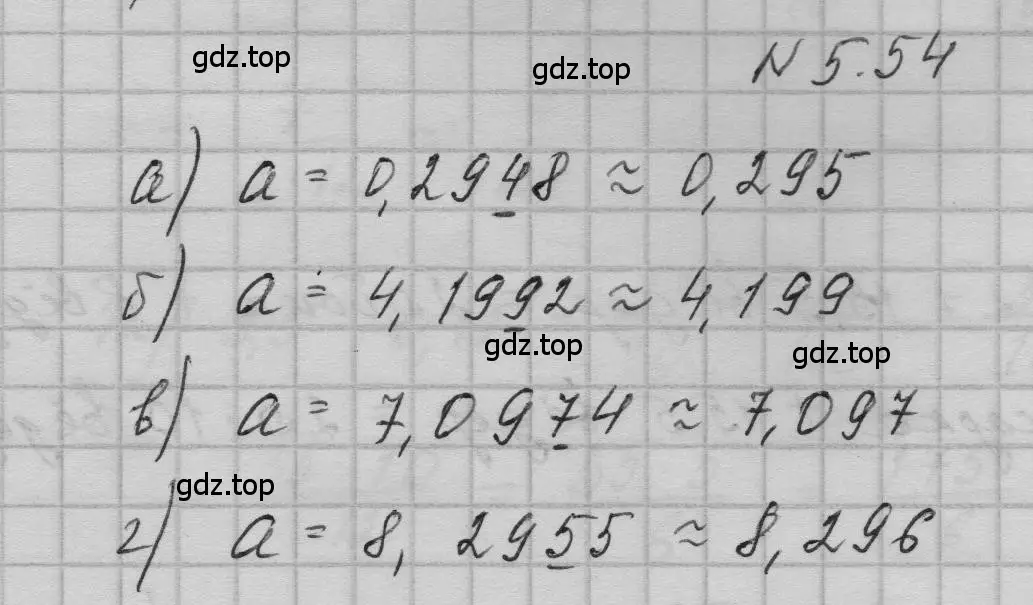 gdz.top
gdz.top
N 5.54
а) a = 0,2948 ≈ 0,295
б) a = 4,1992 ≈ 4,199
gdz.top
gdz.top
в) a = 7,0974 ≈ 7,097
gdz.top
г) a = 8,2955 ≈ 8,296